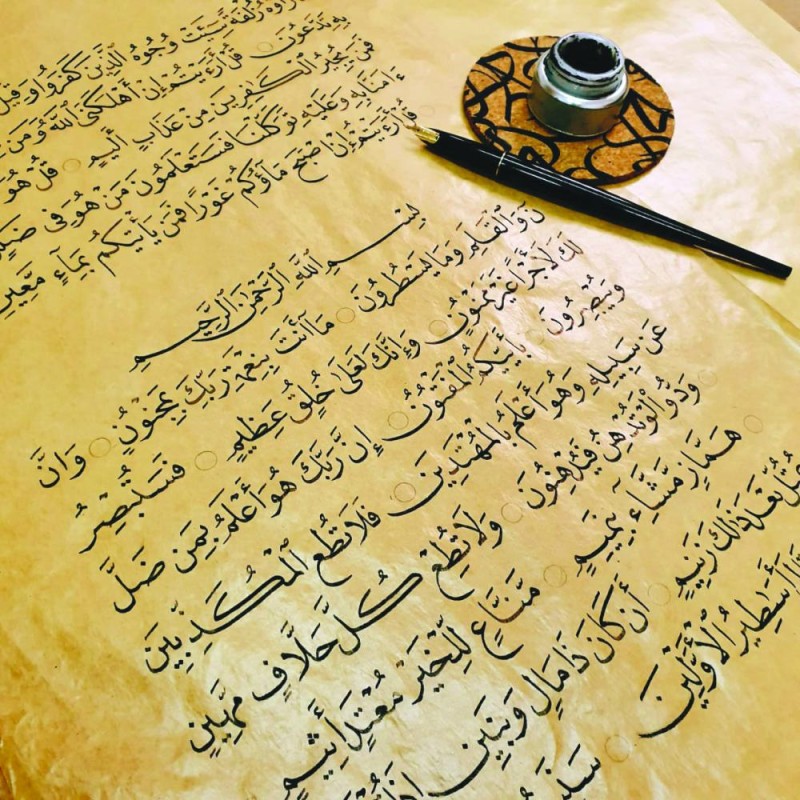 رَأَوْهُ زُلْفَةً سِيئَتْ وُجُوهُ ٱلَّذِينَ كَفَرُوا وَقِيلَ
بِهِ تَدَّعُونَ قُلْ أَرَءَيْتُمْ إِنْ أَهْلَكَنِيَ ٱللَّهُ وَمَن
فَمَن يُجِيرُ ٱلْكَٰفِرِينَ مِنْ عَذَابٍ أَلِيمٍ قُلْ هُوَ
ءَامَنَّا بِهِ وَعَلَيْهِ تَوَكَّلْنَا فَسَتَعْلَمُونَ مَنْ هُوَ فِي
قُلْ أَرَءَيْتُمْ إِنْ أَصْبَحَ مَاؤُكُمْ غَوْرًا فَمَن يَأْتِيكُم بِمَاءٍ مَعِينٍ
بِسْمِ ٱللَّهِ ٱلرَّحْمَٰنِ ٱلرَّحِيمِ
نٓ وَٱلْقَلَمِ وَمَا يَسْطُرُونَ مَا أَنتَ بِنِعْمَةِ رَبِّكَ بِمَجْنُونٍ وَإِنَّ
لَكَ لَأَجْرًا غَيْرَ مَمْنُونٍ وَإِنَّكَ لَعَلَىٰ خُلُقٍ عَظِيمٍ فَسَتُبْصِرُ
وَيُبْصِرُونَ بِأَييِّكُمُ ٱلْمَفْتُونُ إِنَّ رَبَّكَ هُوَ أَعْلَمُ بِمَن ضَلَّ
عَن سَبِيلِهِ وَهُوَ أَعْلَمُ بِٱلْمُهْتَدِينَ فَلَا تُطِعِ ٱلْمُكَذِّبِينَ
وَدُّوا لَوْ تُدْهِنُ فَيُدْهِنُونَ وَلَا تُطِعْ كُلَّ حَلَّافٍ مَّهِينٍ
هَمَّازٍ مَّشَّاءٍ بِنَمِيمٍ مَّنَّاعٍ لِّلْخَيْرِ مُعْتَدٍ أَثِيمٍ
عُتُلٍّ بَعْدَ ذَٰلِكَ زَنِيمٍ أَن كَانَ ذَا مَالٍ وَبَنِينَ إِذَا
أَسَٰطِيرُ ٱلْأَوَّلِينَ